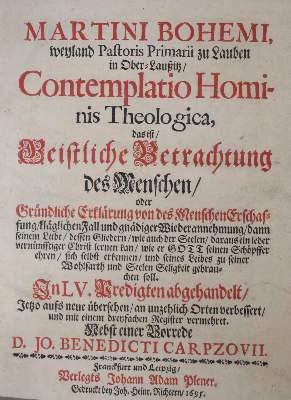 MARTINI BOHEMI,
weyland Pastoris Primarii zu Lauben
in Ober-Laußitz/
Contemplatio Homi-
nis Theologica,
das ist/
Geistliche Betrachtung
des Menschen/
oder
Gründliche Erklärung von des Menschen Erschaf-
fung/ kläglichen Fall und gnädiger Wiederannehmung/ dann
seinem Leibe/ dessen Gliedern/ wie auch der Seelen/ daraus ein jeder
vernünfftiger Christ lernen kan/ wie er GOTT seinen Schöpffer
ehren/ sich selbst erkennen/ und seines Leibes zu seiner
Wohlfarth und Seelen Seligkeit gebrau-
chen soll.
In LV. Predigten abgehandelt/
Jetzo aufs neue übersehen/ an unzehlich Orten verbessert/
und mit einem dreyfachen Register vermehret.
Nebst einer Vorrede
D. JO. BENEDICTI CARPZOVII.
Franckfurt und Leipzig/
Verlegts Johann Adam Plener.
Gedruckt bey Joh. Heinr. Richtern/